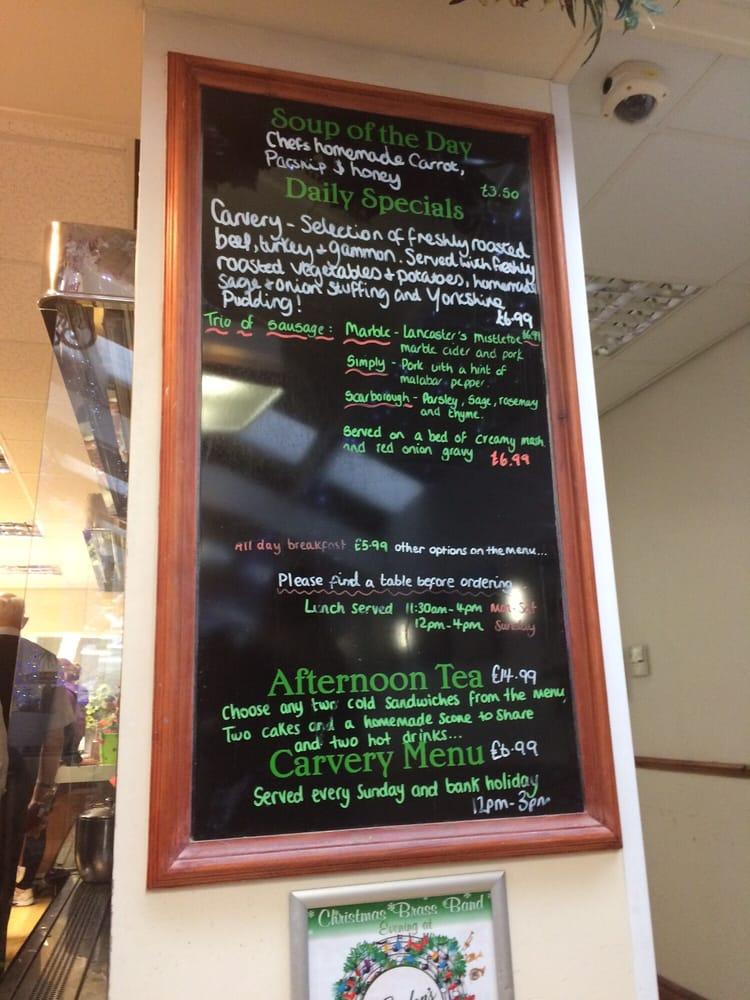 Soup of the Day
Chefs homemade Carrot,
Parsnip & honey
£3.50
Daily Specials
Carvery - Selection of freshly roasted
beef, turkey + gammon. Served with freshly
roasted vegetables + potatoes, homemade
sage + onion stuffing and Yorkshire
Pudding!
£6.99
Trio of sausage: Marble - Lancaster's mistletoe £6.99
marble cider and pork
Simply - Pork with a hint of
malabar pepper.
Scarborough - Parsley, Sage, rosemary
and thyme.
Served on a bed of creamy mash
and red onion gravy £6.99
All day breakfast £5.99 other options on the menu...
Please find a table before ordering
Lunch served 11:30am-4pm Mon-Sat
12pm-4pm Sunday
Afternoon Tea £14.99
Choose any two cold sandwiches from the menu,
Two cakes and a homemade scone to share
and two hot drinks...
Carvery Menu £6.99
Served every Sunday and bank holiday
12pm-3pm
Christmas Brass Band
Evening at